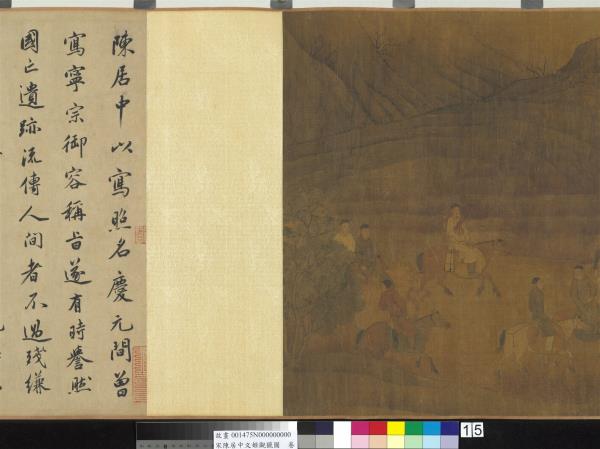 陳居中以寫照名慶元間曾
寫寧宗御容稱旨遂有時譽然
國亡遺跡流傳人間者不過殘縑
故畫 001475N000000000
宋陳居中文姬觀獵圖 卷
15